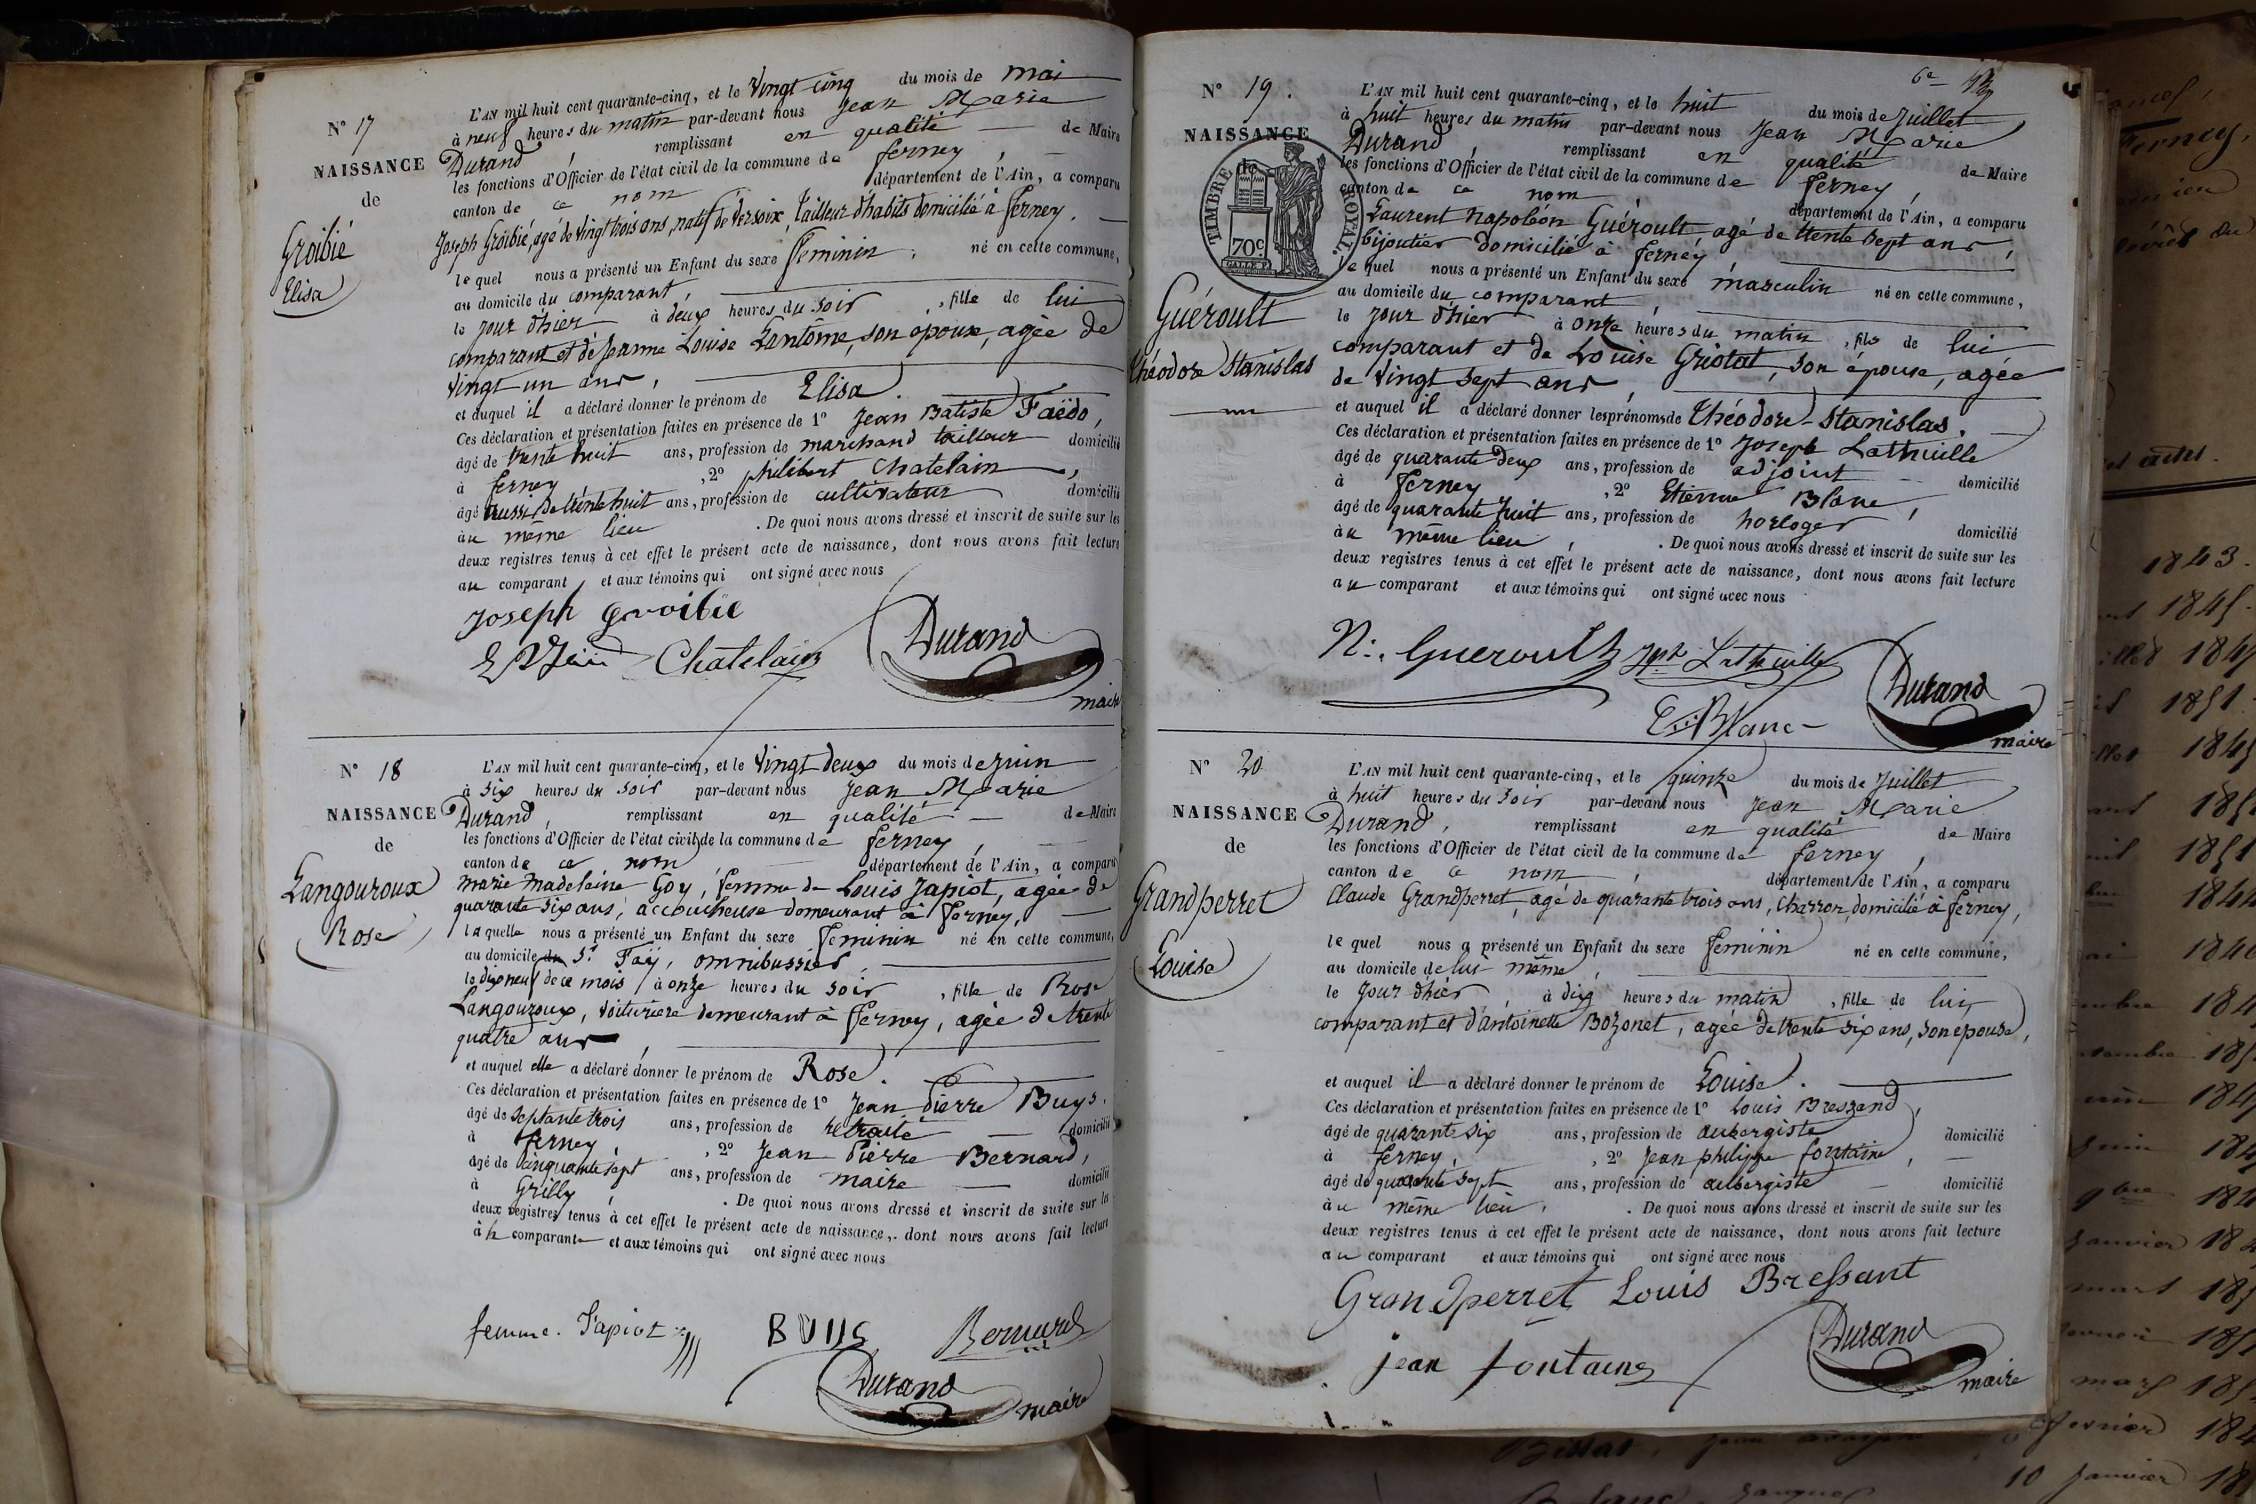 N° 17
NAISSANCE
de
Groibié
Elisa
L'AN mil huit cent quarante-cinq, et le vingt cinq du mois de mai
à neuf heures du matin par-devant nous Jean Marie
Durand, remplissant en qualité de Maire
les fonctions d'Officier de l'état civil de la commune de ferney,
canton de ce nom département de l'Ain, a comparu
Joseph Groibié, agé de vingt trois ans, natif de Versoix, tailleur d'habits domicilié à ferney.
le quel nous a présenté un Enfant du sexe féminin, né en cette commune,
au domicile du comparant,
le jour d'hier à deux heures du soir, fille de lui
comparant et de Jeanne Louise Lantôme, son epouse, agée de
vingt un ans,
et auquel il a déclaré donner le prénom de Elisa.
Ces déclaration et présentation faites en présence de 1° Jean Batiste Faëdo,
âgé de trente huit ans, profession de marchand tailleur domicilié
à ferney, 2° philibert Chatelain,
âgé aussi de trente huit ans, profession de cultivateur domicilié
au même lieu. De quoi nous avons dressé et inscrit de suite sur les
deux registres tenus à cet effet le présent acte de naissance, dont nous avons fait lecture
au comparant, et aux témoins qui ont signé avec nous
Joseph Groibié
Chatelain Durand
maire
N° 18
NAISSANCE
de
Langouroux
Rose
L'AN mil huit cent quarante-cinq, et le vingt deux du mois de juin
à six heures du soir par-devant nous Jean Marie
Durand, remplissant en qualité de Maire
les fonctions d'Officier de l'état civil de la commune de ferney,
canton de ce nom département de l'Ain, a comparu
marie madeleine Goy, femme de Louis Japiot, agée de
quarante six ans, accoucheuse demeurant à ferney,
la quelle nous a présenté un Enfant du sexe féminin né en cette commune,
au domicile du Sr Faÿ, omnibussier,
le dix neuf de ce mois, à onze heures du soir, fille de Rose
Langouroux, voiturière demeurant à ferney, agée de trente
quatre ans,
et auquel elle a déclaré donner le prénom de Rose.
Ces déclaration et présentation faites en présence de 1° Jean Pierre Buys,
âgé de septante trois ans, profession de retraité domicilié
à ferney, 2° Jean Pierre Bernard,
âgé de cinquante sept ans, profession de maire domicilié
à Grilly. De quoi nous avons dressé et inscrit de suite sur les
deux registres tenus à cet effet le présent acte de naissance, dont nous avons fait lecture
à la comparante et aux témoins qui ont signé avec nous
femme Japiot BUIIS Bernard
Durand
maire
6e
N° 19.
NAISSANCE
de
TIMBRE ROYAL.
70c.
Guéroult
théodore Stanislas
L'AN mil huit cent quarante-cinq, et le huit du mois de Juillet
à huit heures du matin par-devant nous Jean Marie
Durand, remplissant en qualité de Maire
les fonctions d'Officier de l'état civil de la commune de ferney,
canton de ce nom département de l'Ain, a comparu
Laurent napoléon Guéroult agé de trente sept ans,
bijoutier domicilié à ferney,
le quel nous a présenté un Enfant du sexe masculin né en cette commune,
au domicile du comparant,
le jour d'hier à onze heures du matin, fils de lui
comparant et de Louise Griotat, son épouse, agée
de vingt sept ans,
et auquel il a déclaré donner les prénoms de théodore-Stanislas.
Ces déclaration et présentation faites en présence de 1° Joseph Lathuille
âgé de quarante deux ans, profession de adjoint domicilié
à ferney, 2° Etienne Blanc,
âgé de quarante huit ans, profession de horloger domicilié
au même lieu, . De quoi nous avons dressé et inscrit de suite sur les
deux registres tenus à cet effet le présent acte de naissance, dont nous avons fait lecture
au comparant et aux témoins qui ont signé avec nous
N. Gueroult Jph Lathuille
E. Blanc Durand
maire
N° 20
NAISSANCE
de
Grandperret
Louise
L'AN mil huit cent quarante-cinq, et le quinze du mois de Juillet
à huit heures du soir par-devant nous Jean Marie
Durand, remplissant en qualité de Maire
les fonctions d'Officier de l'état civil de la commune de ferney,
canton de ce nom, département de l'Ain, a comparu
Claude Grandperret, agé de quarante trois ans, charron, domicilié à ferney,
le quel nous a présenté un Enfant du sexe féminin né en cette commune,
au domicile de lui même,
le jour d'hier, à dix heures du matin, fille de lui,
comparant et d'antoinette Bozonet, agée de trente six ans, son epouse,
et auquel il a déclaré donner le prénom de Louise.
Ces déclaration et présentation faites en présence de 1° Louis Bressand,
âgé de quarante six ans, profession de aubergiste domicilié
à ferney, 2° Jean philippe fontaine,
âgé de quarante sept ans, profession de aubergiste domicilié
au même lieu. De quoi nous avons dressé et inscrit de suite sur les
deux registres tenus à cet effet le présent acte de naissance, dont nous avons fait lecture
au comparant et aux témoins qui ont signé avec nous
Grandperret Louis Bressant
jean fontaine Durand
maire
Ferney,
1843.
1845.
1851
1844
janvier
mars
10 janvier